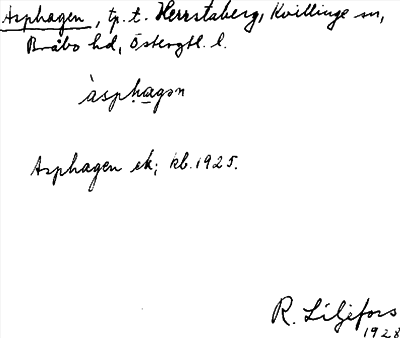 Asphagen, tp. t. Herrstaberg, Kvillinge sn,
Bråbo hd, Östergtl. l.
àsphagən
Asphagen ek; kb. 1925.
R. Liljefors
1928